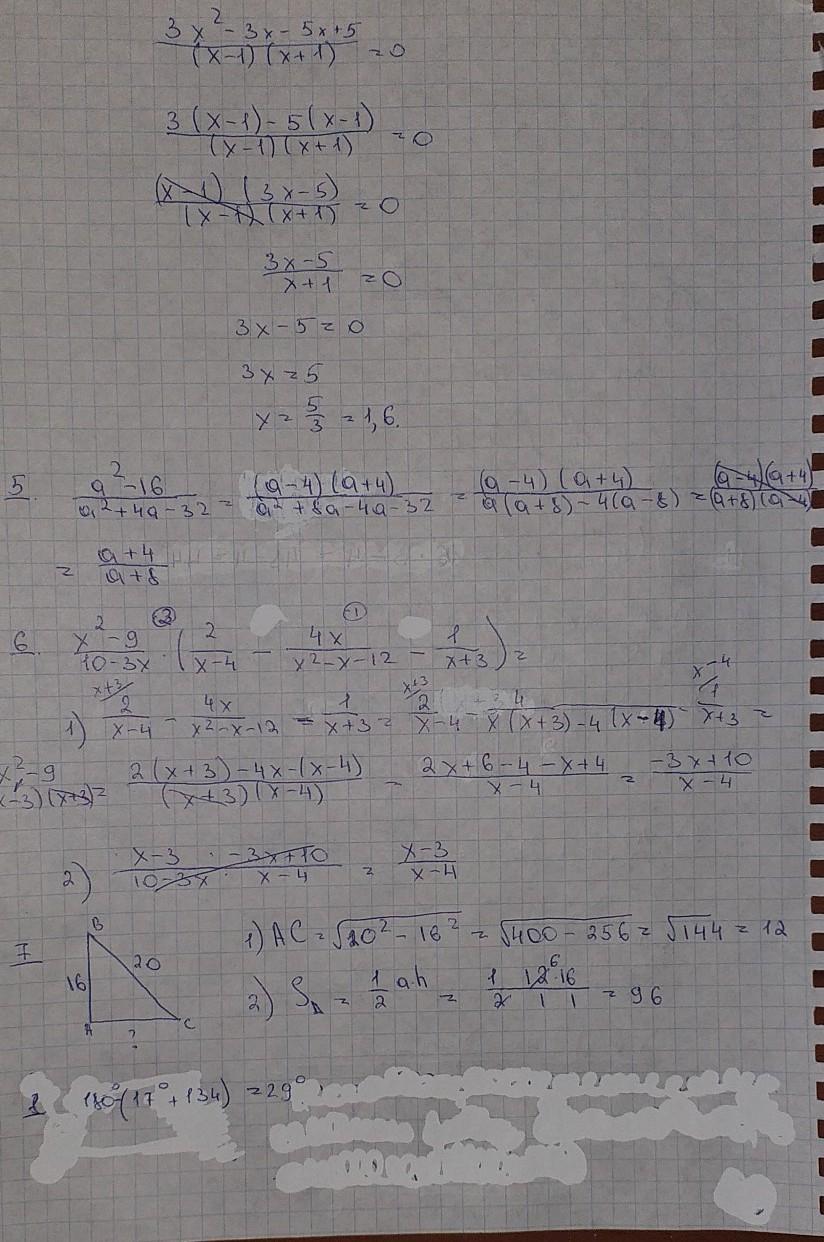 3x² - 3x - 5x + 5 / (x-1)(x+1) = 0
3(x-1) - 5(x-1) / (x-1)(x+1) = 0
(x-1)(3x-5) / (x-1)(x+1) = 0
3x-5 / x+1 = 0
3x - 5 = 0
3x = 5
x = 5/3 = 1,6.
5. a²-16 / a²+4a-32 = (a-4)(a+4) / a²+8a-4a-32 = (a-4)(a+4) / a(a+8)-4(a-8) = (a-4)(a+4) / (a+8)(a-4)
= a+4 / a+8
6. x²-9 / 10-3x · (2 / x-4 - 4x / x²-x-12 - 1 / x+3) =
1) x+3/ 2 / x-4 - 4x / x²-x-12 - 1 / x+3 = x+3/ 2 / x-4 - 4 / x(x+3)-4(x-4) - x-4/ 1 / x+3 =
x²-9 / (x-3)(x+3) = 2(x+3)-4x-(x-4) / (x+3)(x-4) = 2x+6-4-x+4 / x-4 = -3x+10 / x-4
2) x-3 · -3x+10 / 10-3x · x-4 = x-3 / x-4
7 B 16 20 A ? C
1) AC = √20²-16² = √400-256 = √144 = 12
2) S△ = 1/2 a·h = 1 12·16 / 2 1 1 = 96 6
1 180°-(17°+134) = 29°